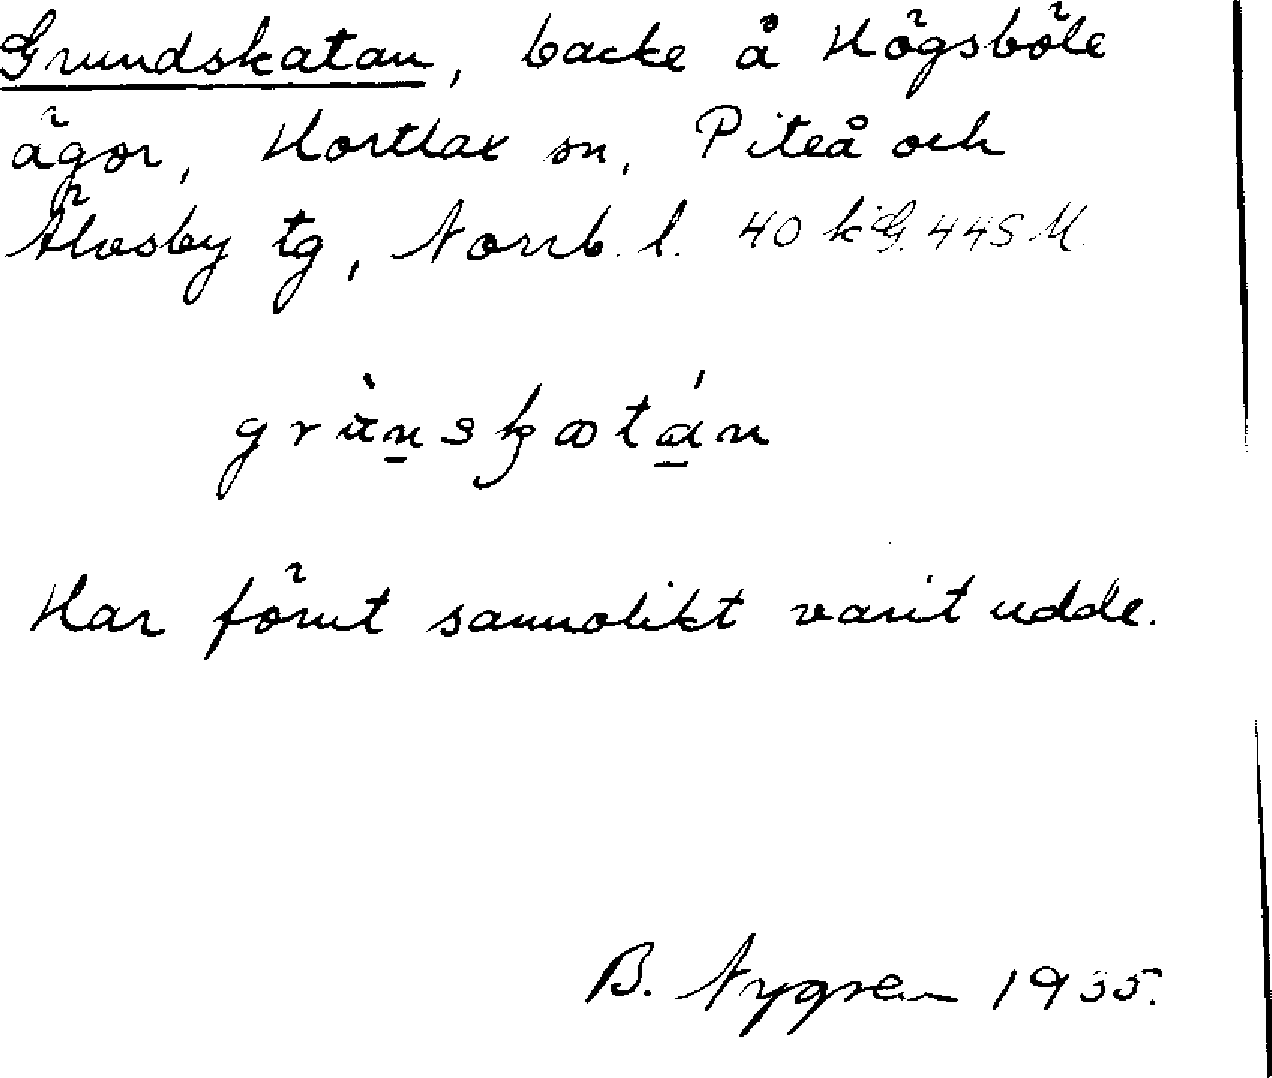 Grundskatan, backe å Högsböle
ägor, Hortlax sn, Piteå och
Älvsby tg, Norrb. l. 40 k G. 44S M.
Har förut sannolikt varit udde.
B. Nygren 1935.